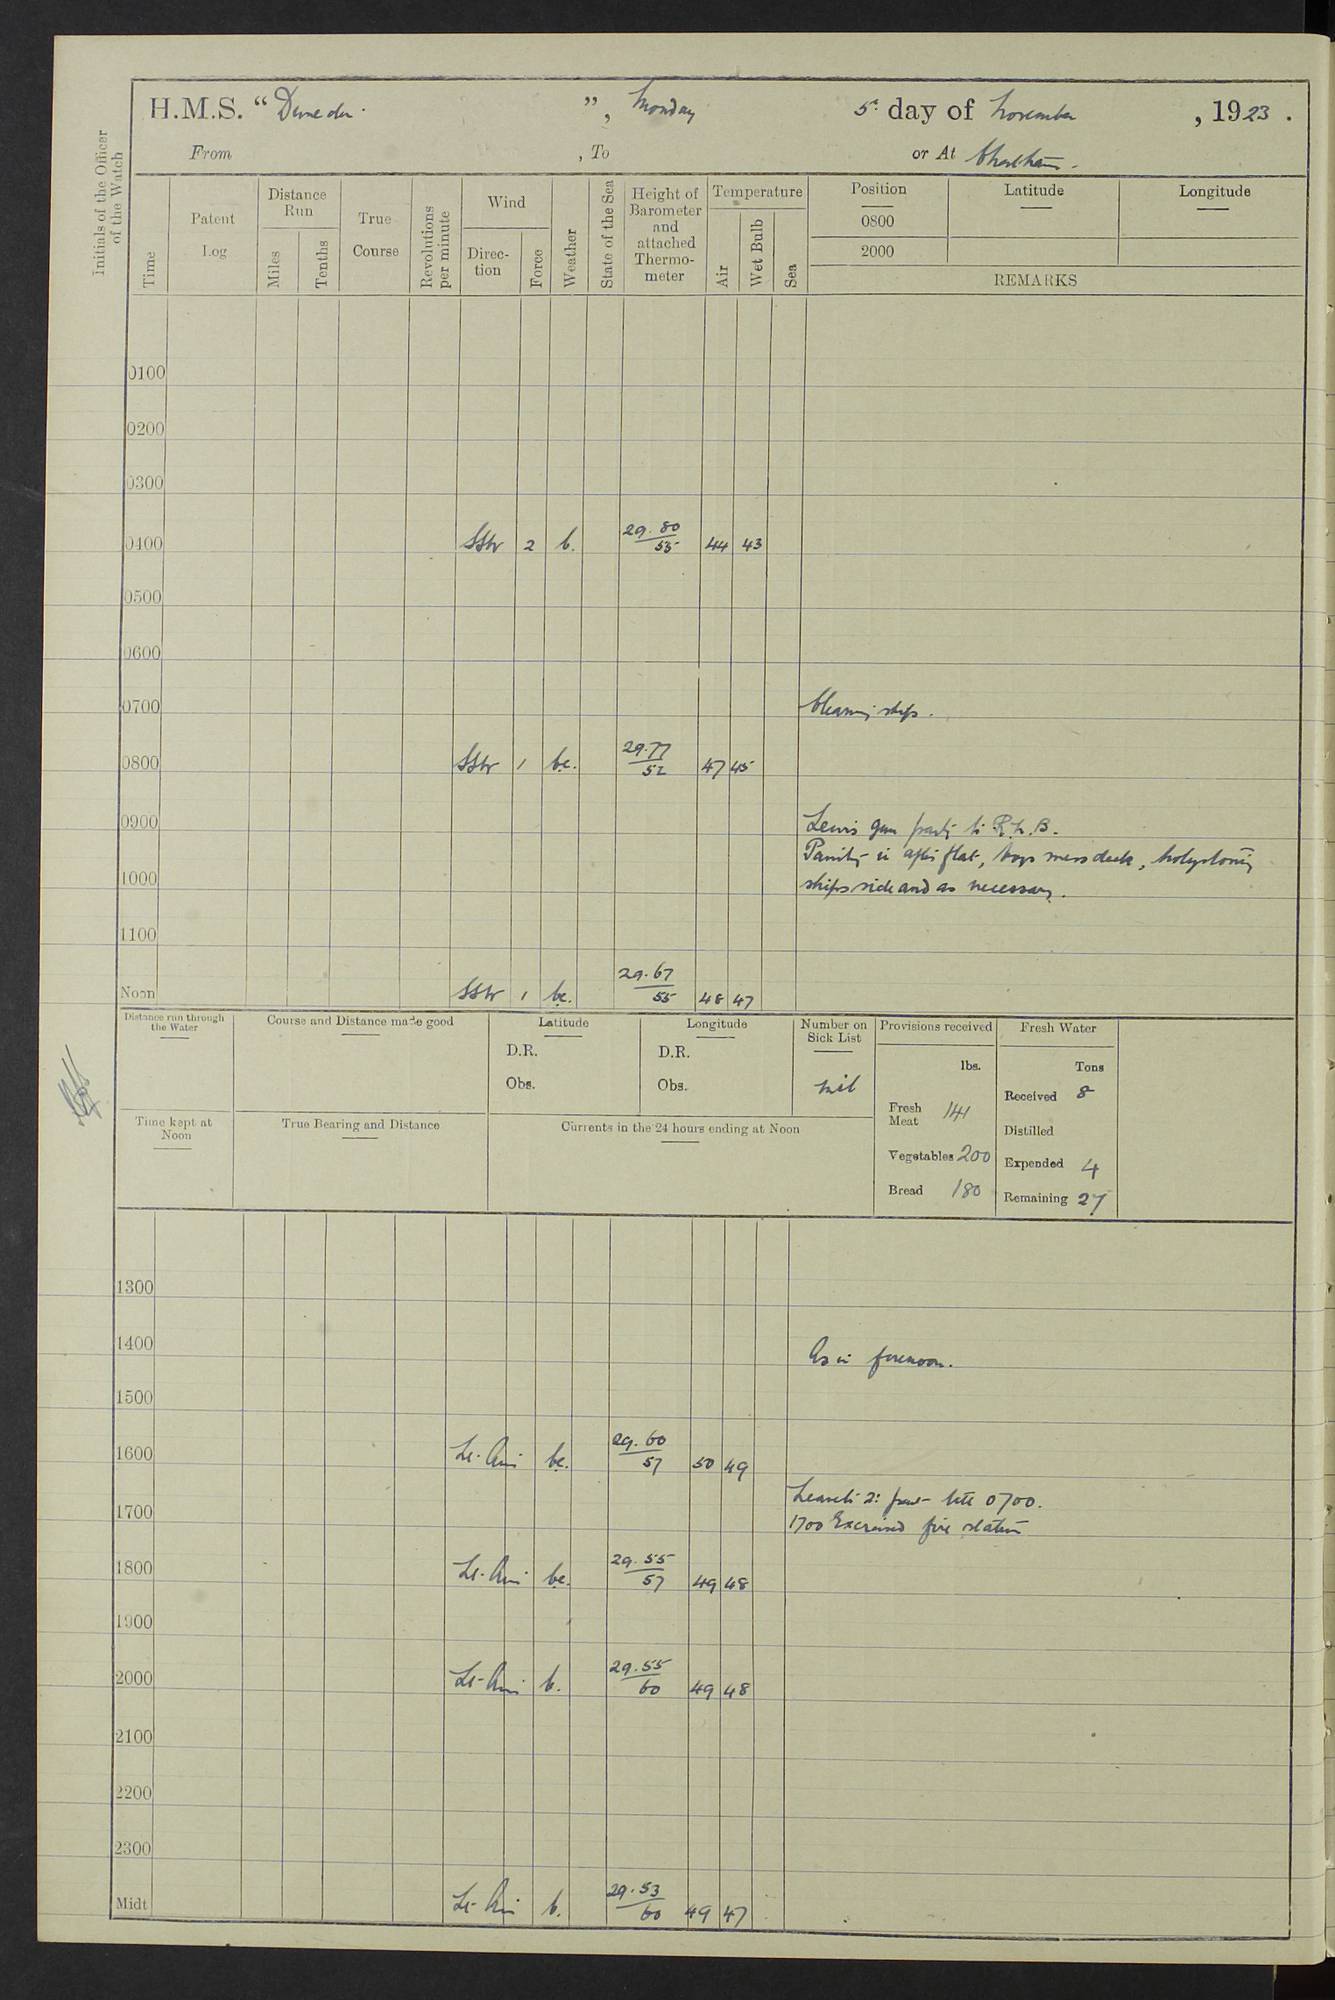 H.M.S. “Dunedin”, Monday 5th day of November, 1923.
From , To or At Chatham.
Initials of the Officer of the Watch
Time
Patent Log
Distance Run
Miles
Tenths
True Course
Revolutions per minute
Wind
Direc-tion
Force
Weather
State of the Sea
Height of Barometer and attached Thermo-meter
Temperature
Air
Wet Bulb
Sea
Position Latitude Longitude
0800
2000
REMARKS
0100
0200
0300
0400 SSW 2 b. 29.80/55 44 43
0500
0600
0700 Cleaning ship.
0800 SSW 1 bc. 29.77/52 47 45
0900 Lewis gun party to R.N.B.
Painting in after flat, boys mess deck, holystoning
1000 ships side and as necessary.
1100
Noon SSW 1 bc. 29.67/55 48 47
Distance run through the Water
Course and Distance made good
Latitude
D.R.
Obs.
Longitude
D.R.
Obs.
Number on Sick List
nil
Provisions received
lbs.
Fresh Meat 141
Vegetables 200
Bread 180
Fresh Water
Tons
Received 8
Distilled
Expended 4
Remaining 27
Time kept at Noon
True Bearing and Distance
Currents in the 24 hours ending at Noon
1300
1400 As in forenoon.
1500
1600 Lt. Airs bc. 29.60/57 50 49
Leave to 2: part till 0700.
1700 1700 Exercised fire stations
1800 Lt. Airs bc. 29.55/57 49 48
1900
2000 Lt. Airs b. 29.55/60 49 48
2100
2200
2300
Midt Lt. Airs b. 29.53/60 49 47